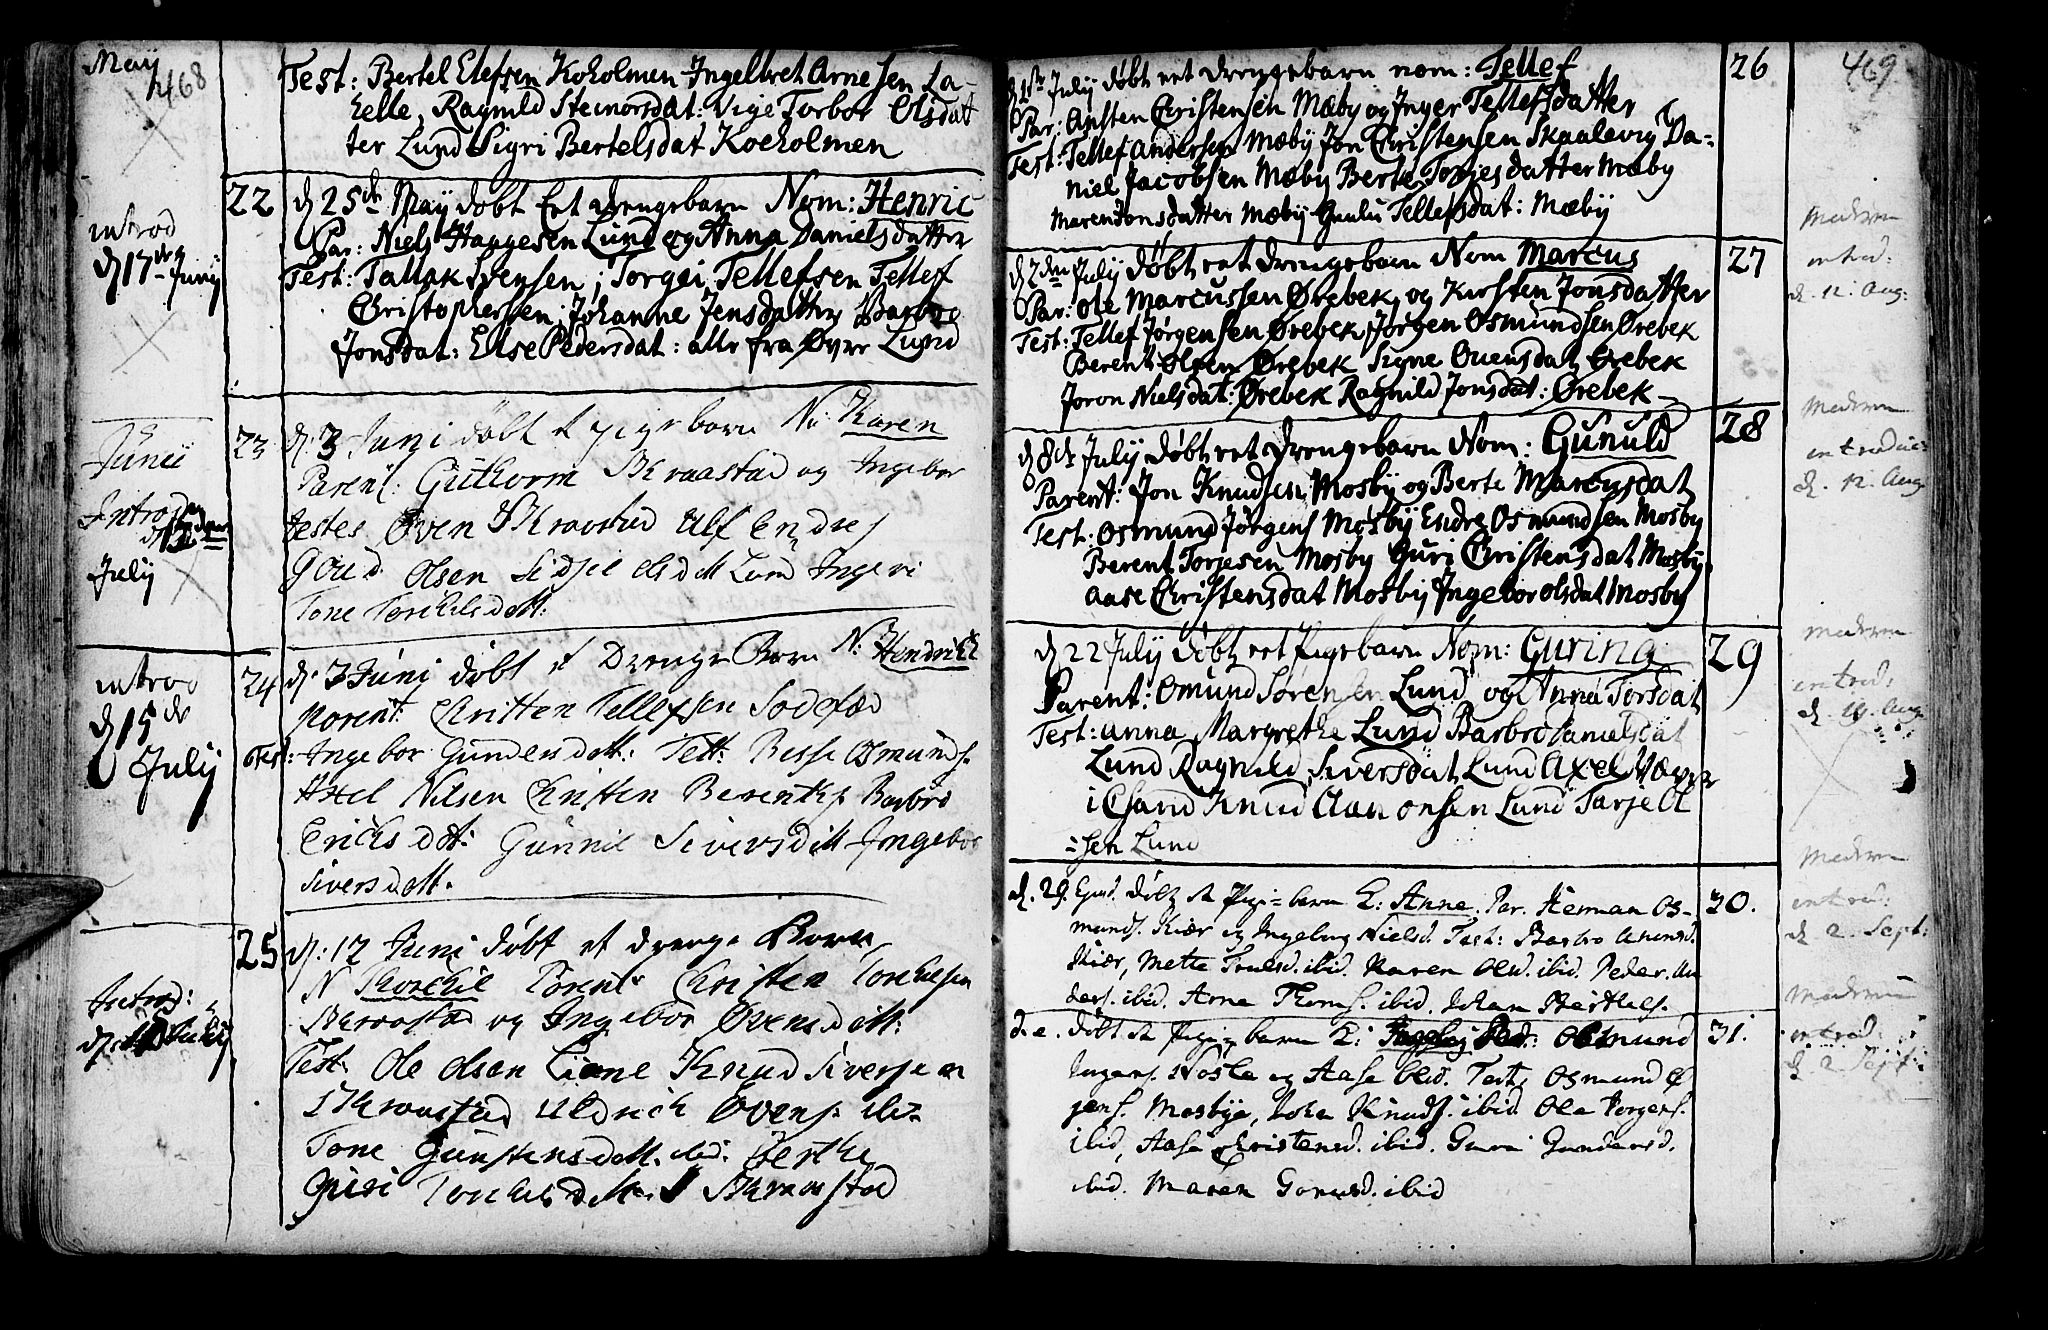 Maij
468
Test: Bertel Elefsen Koholmen Ingelbret Arnesen La-
helle, Ragnild Steinorsdat: Vige Torbor Olsdat
ter Lund Sigri Bertelsdat Koeholmen
introd
d 17de Junij
22
d 25de Maij døbt Eet drengebarn Nom: Henric
Par: Niels Haagesen Lund og Anna Danielsdatter
Test: Tallak Svensen, Torgei Tellefsen Tellef
Christophersen, Johanne Jensdatter Barbro
Jonsdat: Else Pedersdat: alle fra Øvre Lund
Junii
Introd
July
23
d. 3 Juni døbt et pigebarn N: Karen
Parent: Guthorm Skraastad og Ingebor
testes Oven Skraastad Ulf Endres
Olsen Sidsel Lund
Tone Torkelsdatt:
introd
d 15de
July
24
d. 3 Juni døbt et Drenge Barn N: Hendrick
parent: Christen Tellefsen Sodefæd
Test: Ingebor Gundersdatt: Test: Besse Osmunds.
Axel Nilsen Christen Berentsf Barbro
Ericksdat: Gunnil Siversdatt Ingebor
Siversdatt.
Introd:
25
d: 17 Juni døbt et drenge Barn
N Thorchil Parent Christen Torchelsen
Skraastad og Ingebor Ovensdatt:
Test: Ole Olsen Knud Siversen
Skraastad Uldrich Ovens: ibi:
Tone Gunstensdatt. ibid: Berthe
Guri Torkelsdatt. Skraastad
469
26
d 1ste July døbt eet drengebarn nom: Tellef
Par: Ansten Christensen Mæby og Inger Tellefsdatter
Test: Tellef Andersen Mæby Jon Christensen Skaalevig Da-
niel Jacobsen Mæby Berte Torjesdatter Mæby
Maren Jonsdatter Mæby Gunlu Tellefsdat: Mæby
27
d 2den July døbt eet drengebarn Nom Marcus
Par: Ole Marcussen Ørebek og Kirsten Jonsdatter
Test: Tellef Jørgensen Ørebek Jørgen Osmundsen Ørebek
Berent Olsen Ørebek Signe Ovensdat Ørebek
Joron Nielsdat: Ørebek Ragnild Jonsdat: Ørebek
Moderen
introd:
d. 12. Aug:
28
d 8de July døbt eet drengebarn Nom: Gunuld
Parent: Jon Knudsen Mosby og Berte Marcusdat
Test: Osmund Jørgens Mosby Endre Osmundsen Mosby
Berent Torjesen Mosby Guri Christensdat Mosby
Aase Christensdat Mosby Ingebor Olsdat Mosby
Moderen
introduc:
d. 12. Aug
29
d 22 July døbt eet Pigebarn Nom: Guring
Parent: Omund Sørensen Lund og Anna Torsdat
Test: Anna Margrethe Lund Barbro Danielsdat
Lund Ragnild Siversdat Lund Axel
i Chsand Knud Aanonsen Lund Tarjel
=sen Lund
Moderen
introd:
d. 19. Aug
30.
d. 29. døbt et Pige=barn Anne. Par. Herman Os-
munds. Kiær og Ingeborg Nielsd. Test: Barbro
Kiær, Mette Truelsd. ibid. Karen Olsd. ibid. Peder An
ders. ibid. Arne Thoms. ibid. Johan
Moderen
introd:
d. 2. Sept:
31.
d. e. døbt et Pige-barn Ingeborg Par: Osmund
Jngers. og Aase Olsd. Test: Osmund
jens. Mosbye, John Knuds. ibid Ole Jorgens.
ibid, Aase Christensd. ibid. Guri Gundersd.
ibid. Maren Gonusd. ibid
Moderen
introd:
d. 2. Sept: